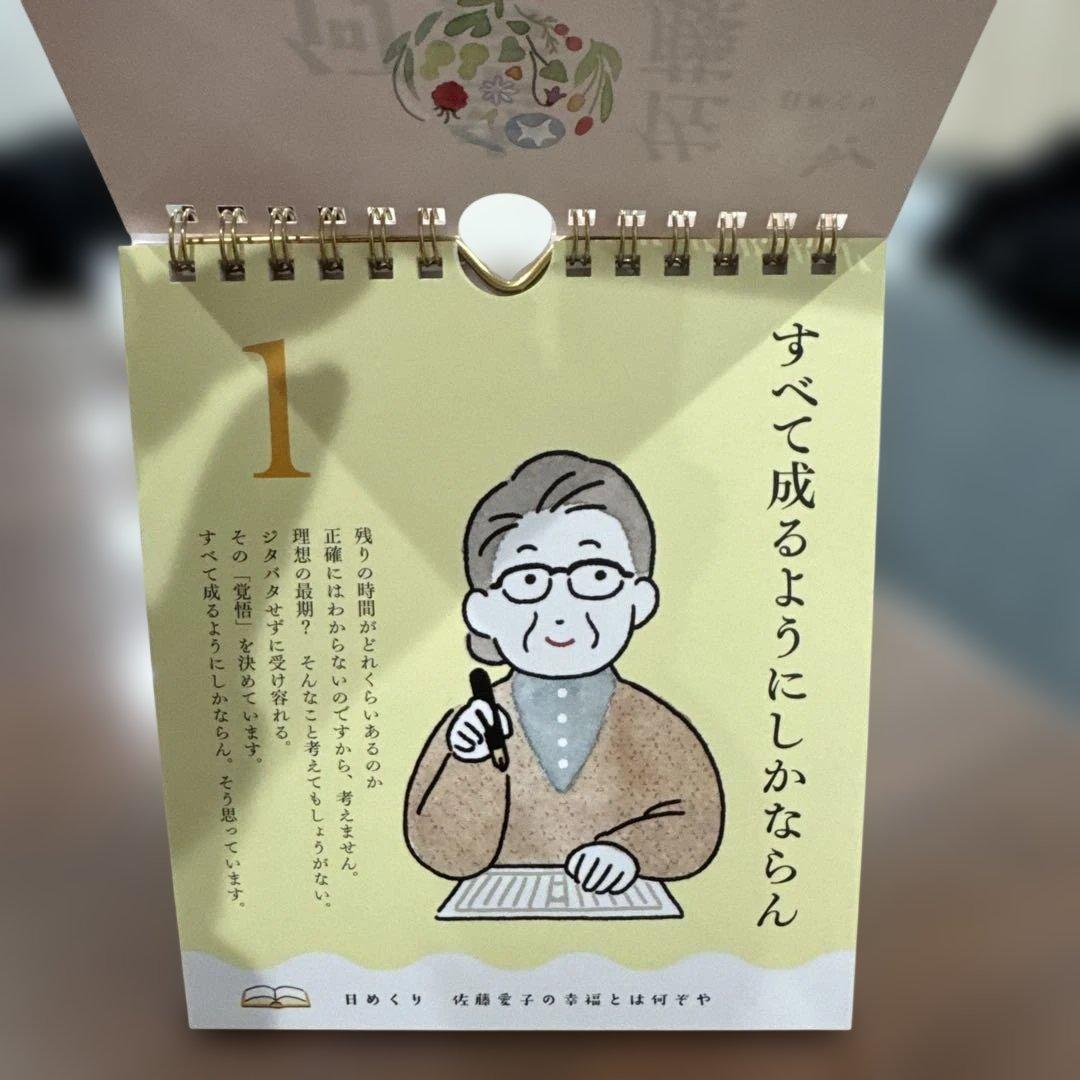 すべて成るようにしかならん
1
残りの時間がどれくらいあるのか
正確にはわからないのですから、考えません。
理想の最期？　そんなこと考えてもしょうがない。
ジタバタせずに受け容れる。
その「覚悟」を決めています。
すべて成るようにしかならん。そう思っています。
日めくり　佐藤愛子の幸福とは何ぞや